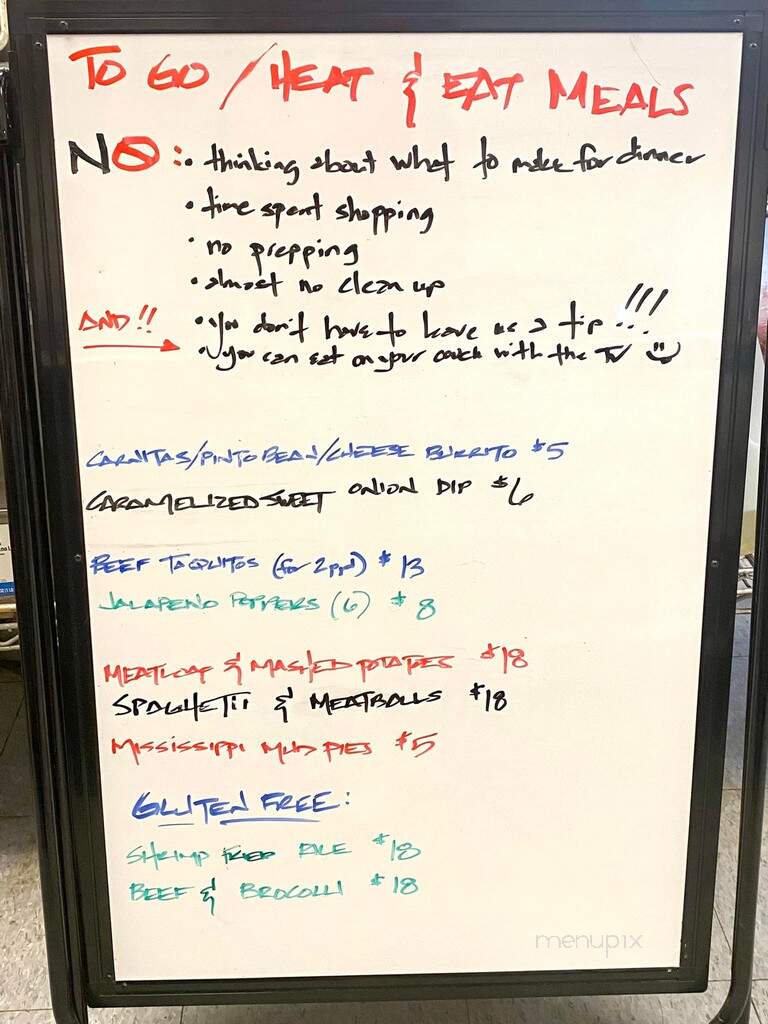 TO GO / HEAT & EAT MEALS
NO: • thinking about what to make for dinner
• time spent shopping
• no prepping
• almost no clean up
AND!! • you don't have to leave us a tip !!!
• you can eat on your couch with the TV
CARNITAS/PINTO BEAN/CHEESE BURRITO $5
CARAMELIZED SWEET ONION DIP $6
BEEF TAQUITOS (for 2ppl) $13
JALAPENO POPPERS (6) $8
MEATLOAF & MASHED POTATOES $18
SPAGHETTI & MEATBALLS $18
MISSISSIPPI MUD PIES $5
GLUTEN FREE:
SHRIMP FRIED RICE $18
BEEF & BROCOLLI $18
menupix